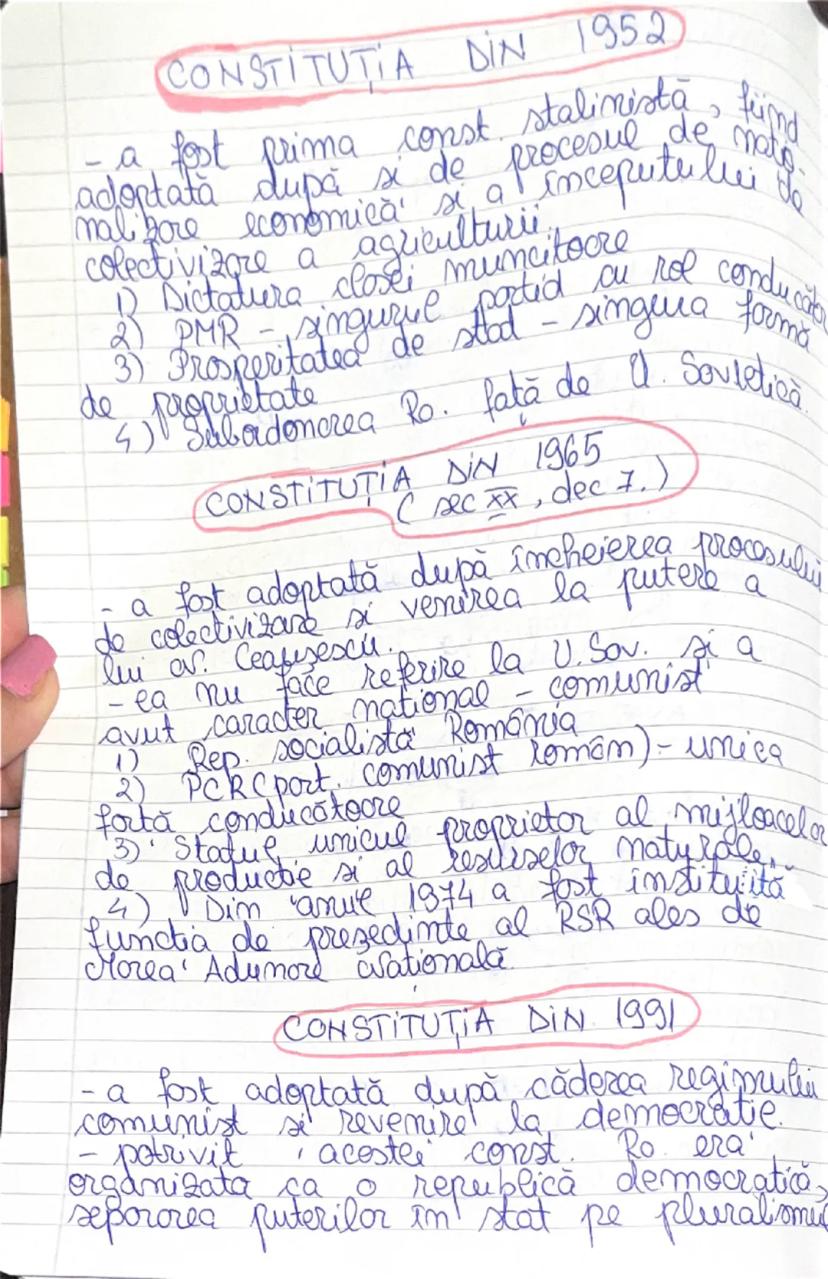 CONSTITUȚIA DIN 1952
- a fost prima const. stalinistă, fiind
adoptată după și de procesul de națio-
nalizare economică și a începutului de
colectivizare a agriculturii.
1) Dictatura clasei muncitoare
2) PMR - singurul partid cu rol conducător
3) Prosperitatea de stat - singura formă
de proprietate
4) Subordonarea Ro. față de U. Sovietică.
CONSTITUȚIA DIN 1965
(sec XX, dec 7.)
- a fost adoptată după încheierea procesului
de colectivizare și venirea la putere a
lui N. Ceaușescu.
- ea nu face referire la U.Sov. și a
avut caracter național - comunist
1) Rep. socialistă România
2) PCR(part. comunist român) - unica
forță conducătoare
3) Statul unicul proprietar al mijloacelor
de producție și al resurselor naturale.
4) Din anul 1974 a fost instituită
funcția de președinte al RSR ales de
Marea Adunare Națională
CONSTITUȚIA DIN 1991
- a fost adoptată după căderea regimului
comunist și revenire la democrație.
- potrivit acestei const. Ro. era
organizata ca o republică democratică,
separarea puterilor în stat pe pluralismul